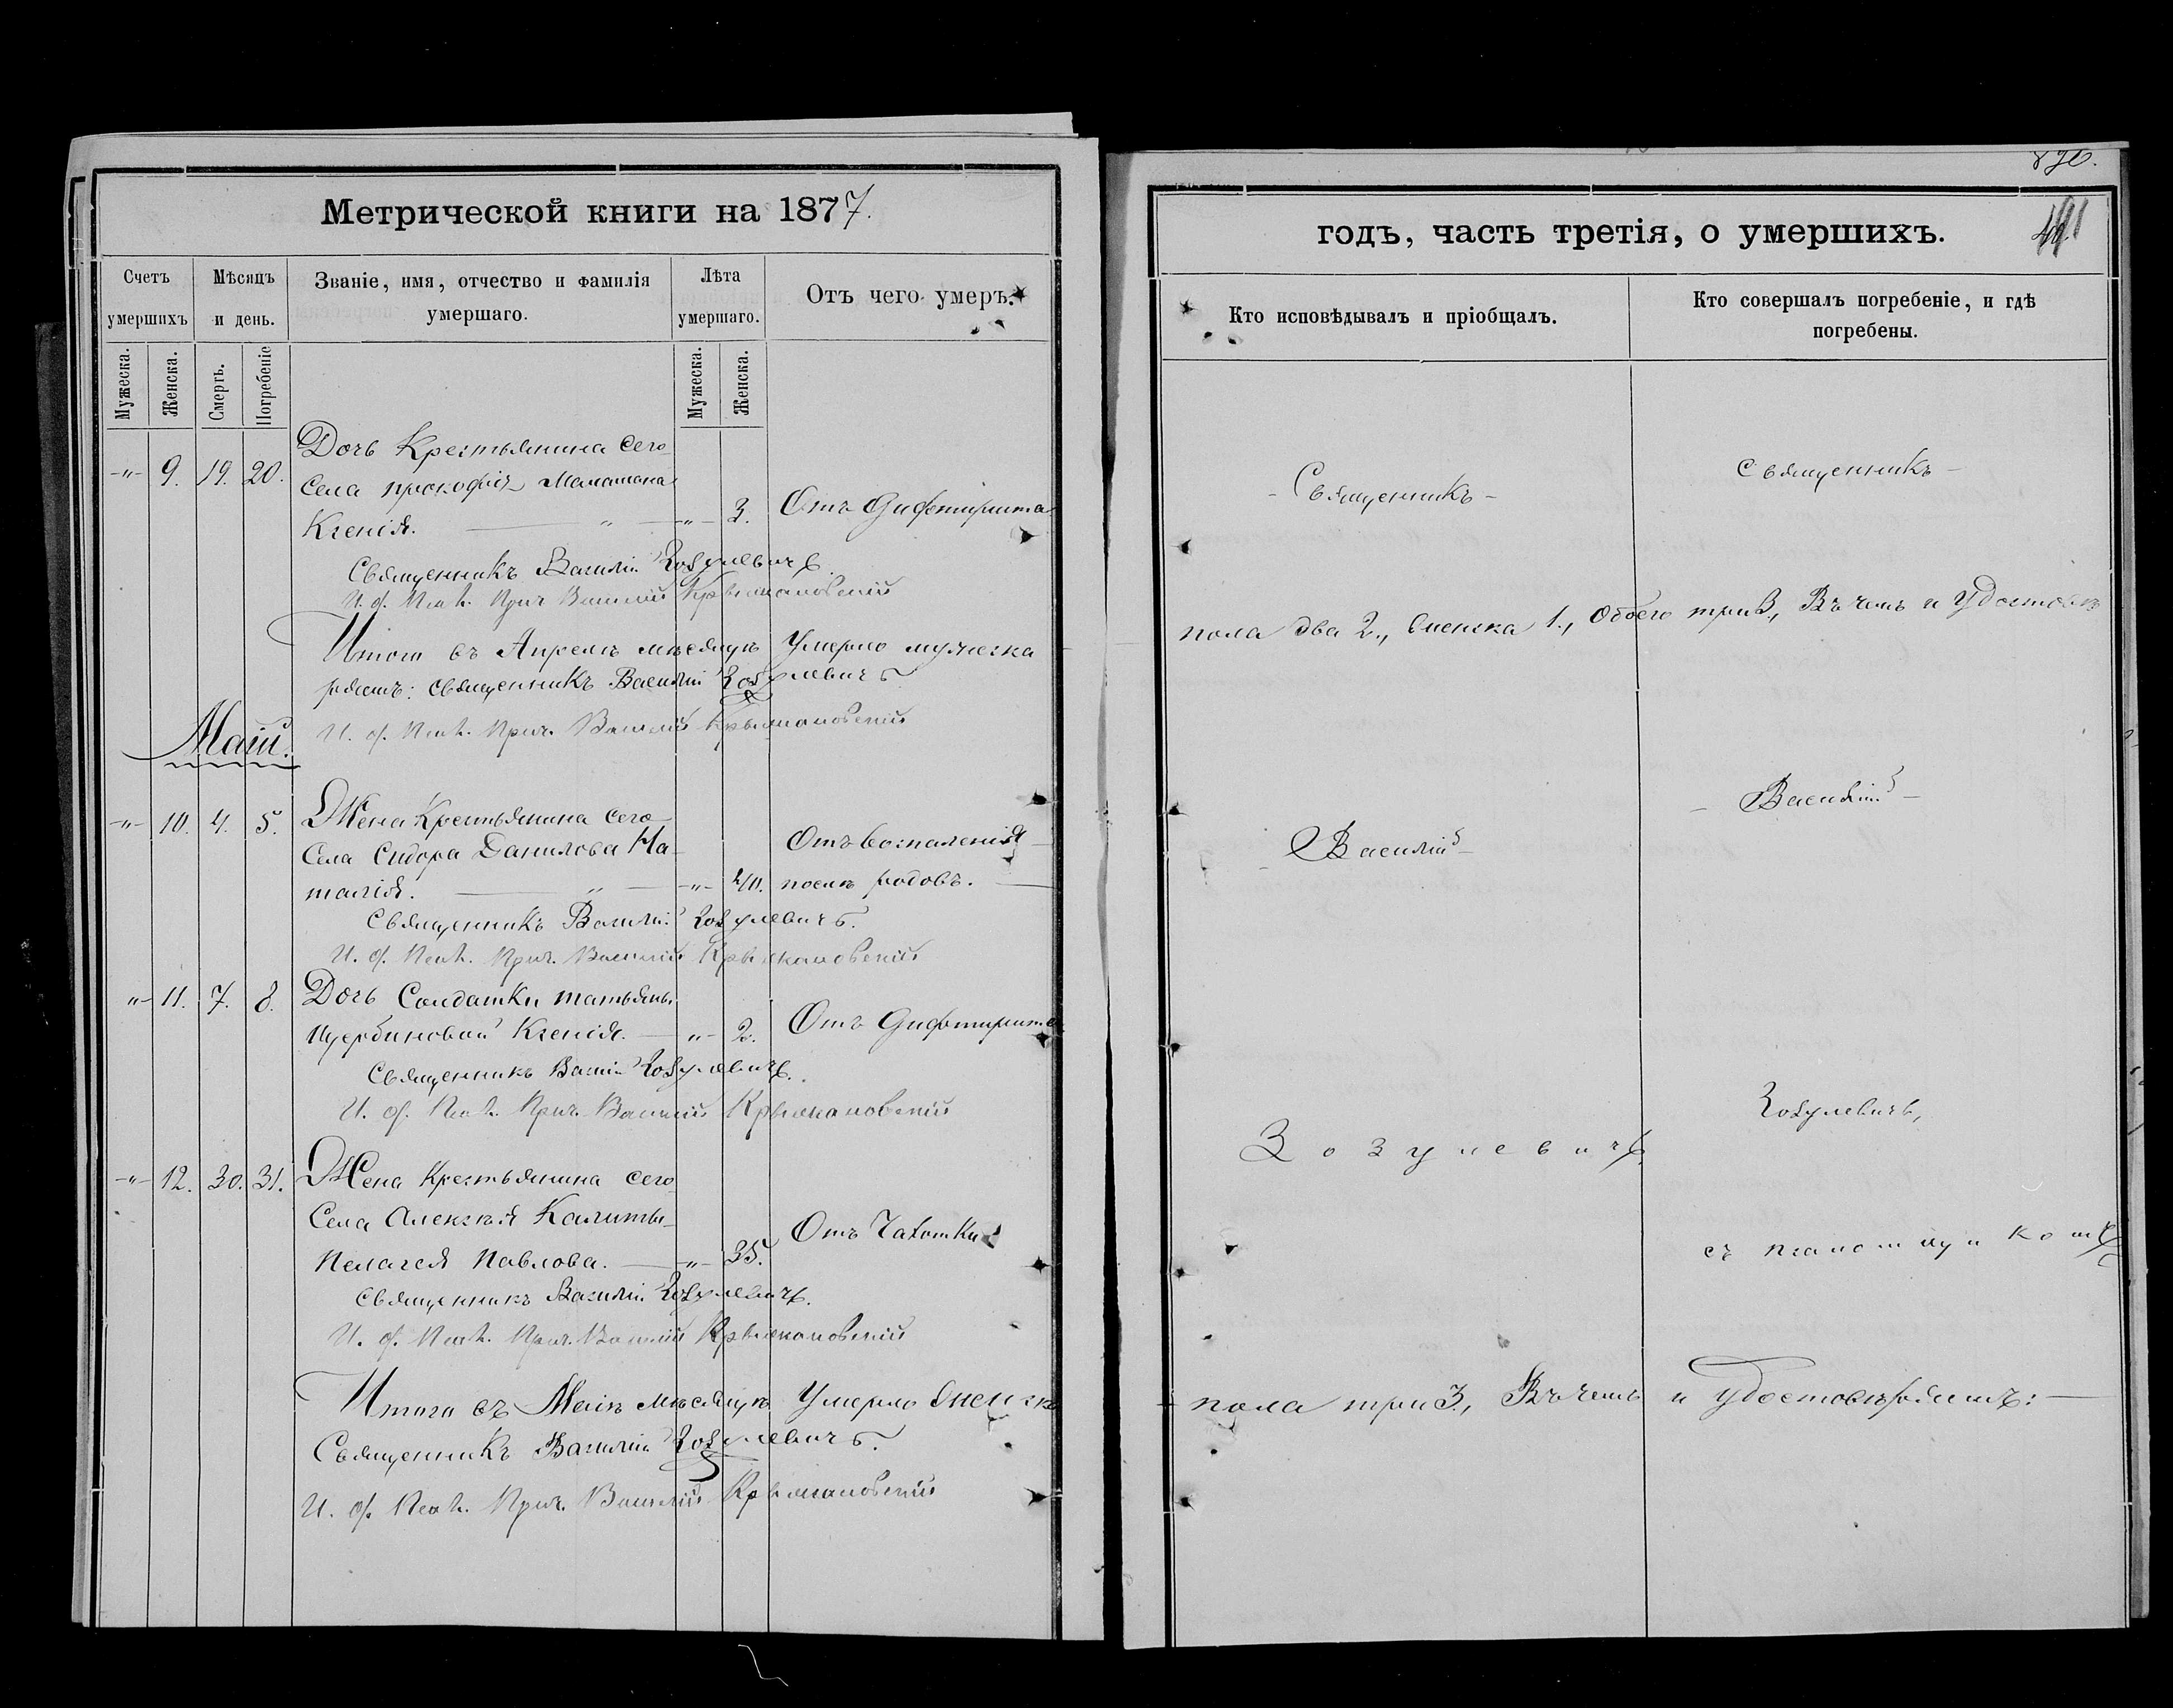 Метрической книги на 1877.
Счетъ умершихъ
Мѣсяцъ и день.
Званіе, имя, отчество и фамилія умершаго.
Лѣта умершаго.
Отъ чего умеръ.
Мужеска.
Женска.
Смерть.
Погребеніе
Мужеска.
Женска.
Дочь Крестьянина сего
-"- 9. 19. 20.
села прокофія
Ксенія. " -"- 3. Отъ Дифтирита
Священникъ Василій Зозулевичъ
И. д. Псал. Прич. Василій Крыжановскій
Итого въ Апрелѣ мѣсяцѣ Умерло мужеска
ряемъ: священникъ Василій Зозулевичъ
И. д. Псал. Прич. Василій Крыжановскій
Маій.
-"- 10. 4. 5. Жена Крестьянина сего
села Сидора Данилова На- Отъ воспаленія
талія. " -"- 40. послѣ родовъ.
Священникъ Василій Зозулевичъ.
И. д. Псал. Прич. Василій Крыжановскій
"- 11. 7. 8. Дочь Солдатки татьяны
Щербиновой Ксенія. "- 2. Отъ Дифтирита
Священникъ Василій Зозулевичъ.
И. д. Псал. Прич. Василій Крыжановскій
-"- 12. 30. 31. Жена Крестьянина сего
села Алексѣя Калиты
Пелагея Павлова. -"- 35. Отъ Чахотки
Священникъ Василій Зозулевичъ.
И. д. Псал. Прич. Василій Крыжановскій
Итого въ Маіѣ мѣсяцѣ Умерло женска
Священникъ Василій Зозулевичъ.
И. д. Псал. Прич. Василій Крыжановскій
годъ, часть третія, о умершихъ.
Кто исповѣдывалъ и пріобщалъ.
Кто совершалъ погребеніе, и гдѣ погребены.
- Священникъ -
Священникъ -
пола два 2., женска 1., обоего три 3., Въ чемъ и Удостовѣ
- Василій -
- Василій -
Зозулевичъ.
Зозулевичъ,
съ
пола три 3., Въ чемъ и удостовѣряемъ: